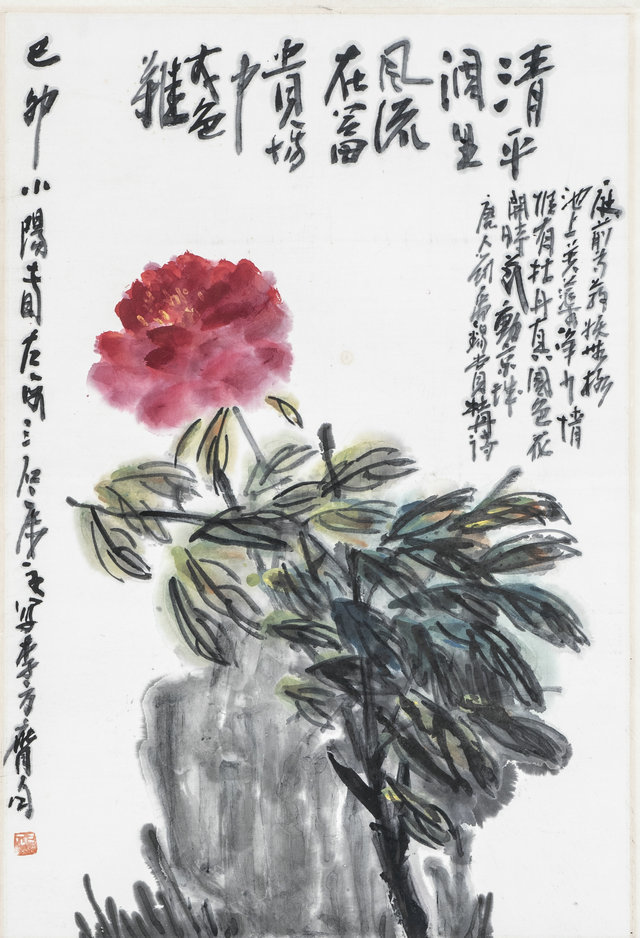 清平
調里
風流
在富
貴場
中
本色
難
庭前芍藥妖無格
池上芙蕖淨少情
惟有牡丹真國色花
開時節動京城
唐人劉禹錫賞牡丹詩
己卯小陽春 写李方膺句